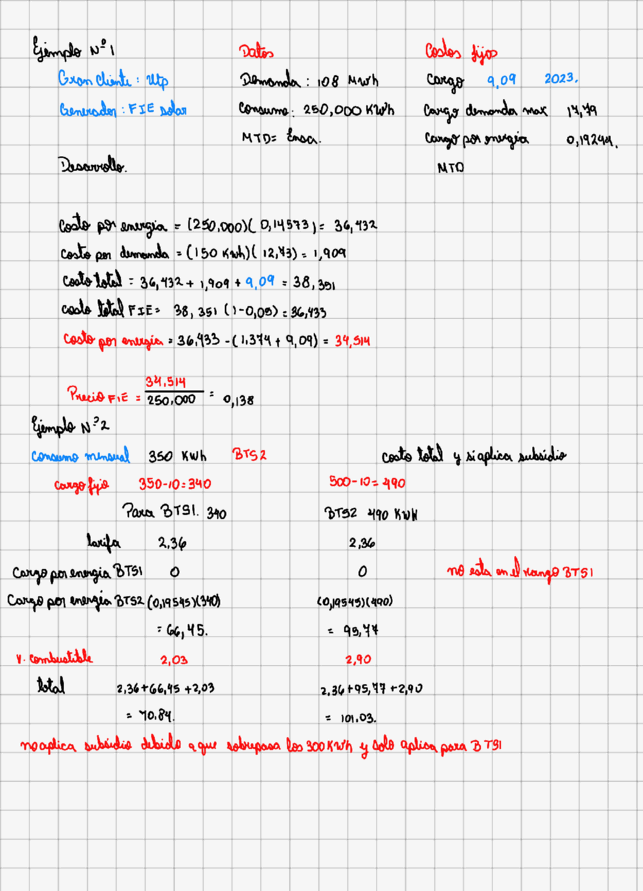 Ejemplo Nº1 Datos Costos fijos
Gran cliente: Utp Demanda: 108 Mwh Cargo 9,09 2023.
Generador: FIE solar Consumo: 250,000 KWh Cargo demanda max 17,79
MTD= Ensa. Cargo por energia 0,19244.
Desarrollo. MTD
Costo por energia = (250,000)(0,14573) = 36,432
Costo por demanda = (150 Kwh)(12,73) = 1,909
Costo total = 36,432 + 1,909 + 9,09 = 38,351
Costo total FIE= 38,351 (1-0,05) = 36,433
Costo por energia = 36,433 - (1,374 + 9,09) = 34,514
Precio FIE = 34,514 / 250,000 = 0,138
Ejemplo Nº2
Consumo mensual 350 KWh BTS2 costo total y si aplica subsidio
cargo fijo 350-10=340 500-10=490
Para BTS1. 340 BTS2 490 KWH
tarifa 2,36 2,36
Cargo por energia BTS1 0 0 no esta en el rango BTS1
Cargo por energia BTS2 (0,19545)(340) (0,19545)(490)
= 66,45. = 95,77
V. combustible 2,03 2,90
total 2,36+66,45+2,03 2,36+95,77+2,90
= 70,84. = 101,03.
no aplica subsidio debido a que sobrepasa los 300 KWh y solo aplica para BTS1